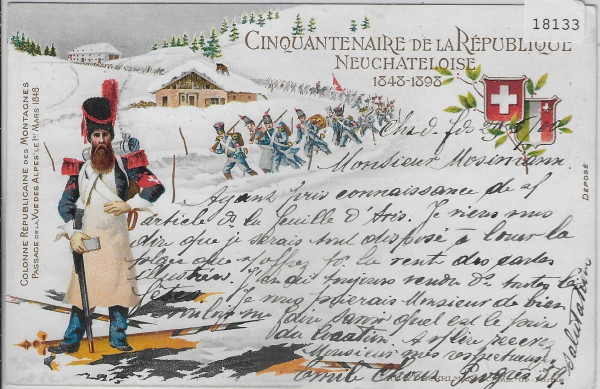 18133
CINQUANTENAIRE DE LA RÉPUBLIQUE
NEUCHATELOISE
1848-1898
COLONNE RÉPUBLICAINE DES MONTAGNES
PASSAGE DE LA VUE DES ALPES LE 1er MARS 1848
DÉPOSÉ
Ch. d. fds
Monsieur Mosimann.
Ayant pris connaissance de
article d. la feuille d'Avis. Je viens vous
dire que je serais tout disposé à louer la
que pr la vente des cartes
illustrées. J'en ai toujours vendu de toutes les
fêtes. Je vous prierais Monsieur de bien
vouloir me dire savoir quel est le prix
du location.
Monsieur mes respectueux
Emile Progrès
Salutations